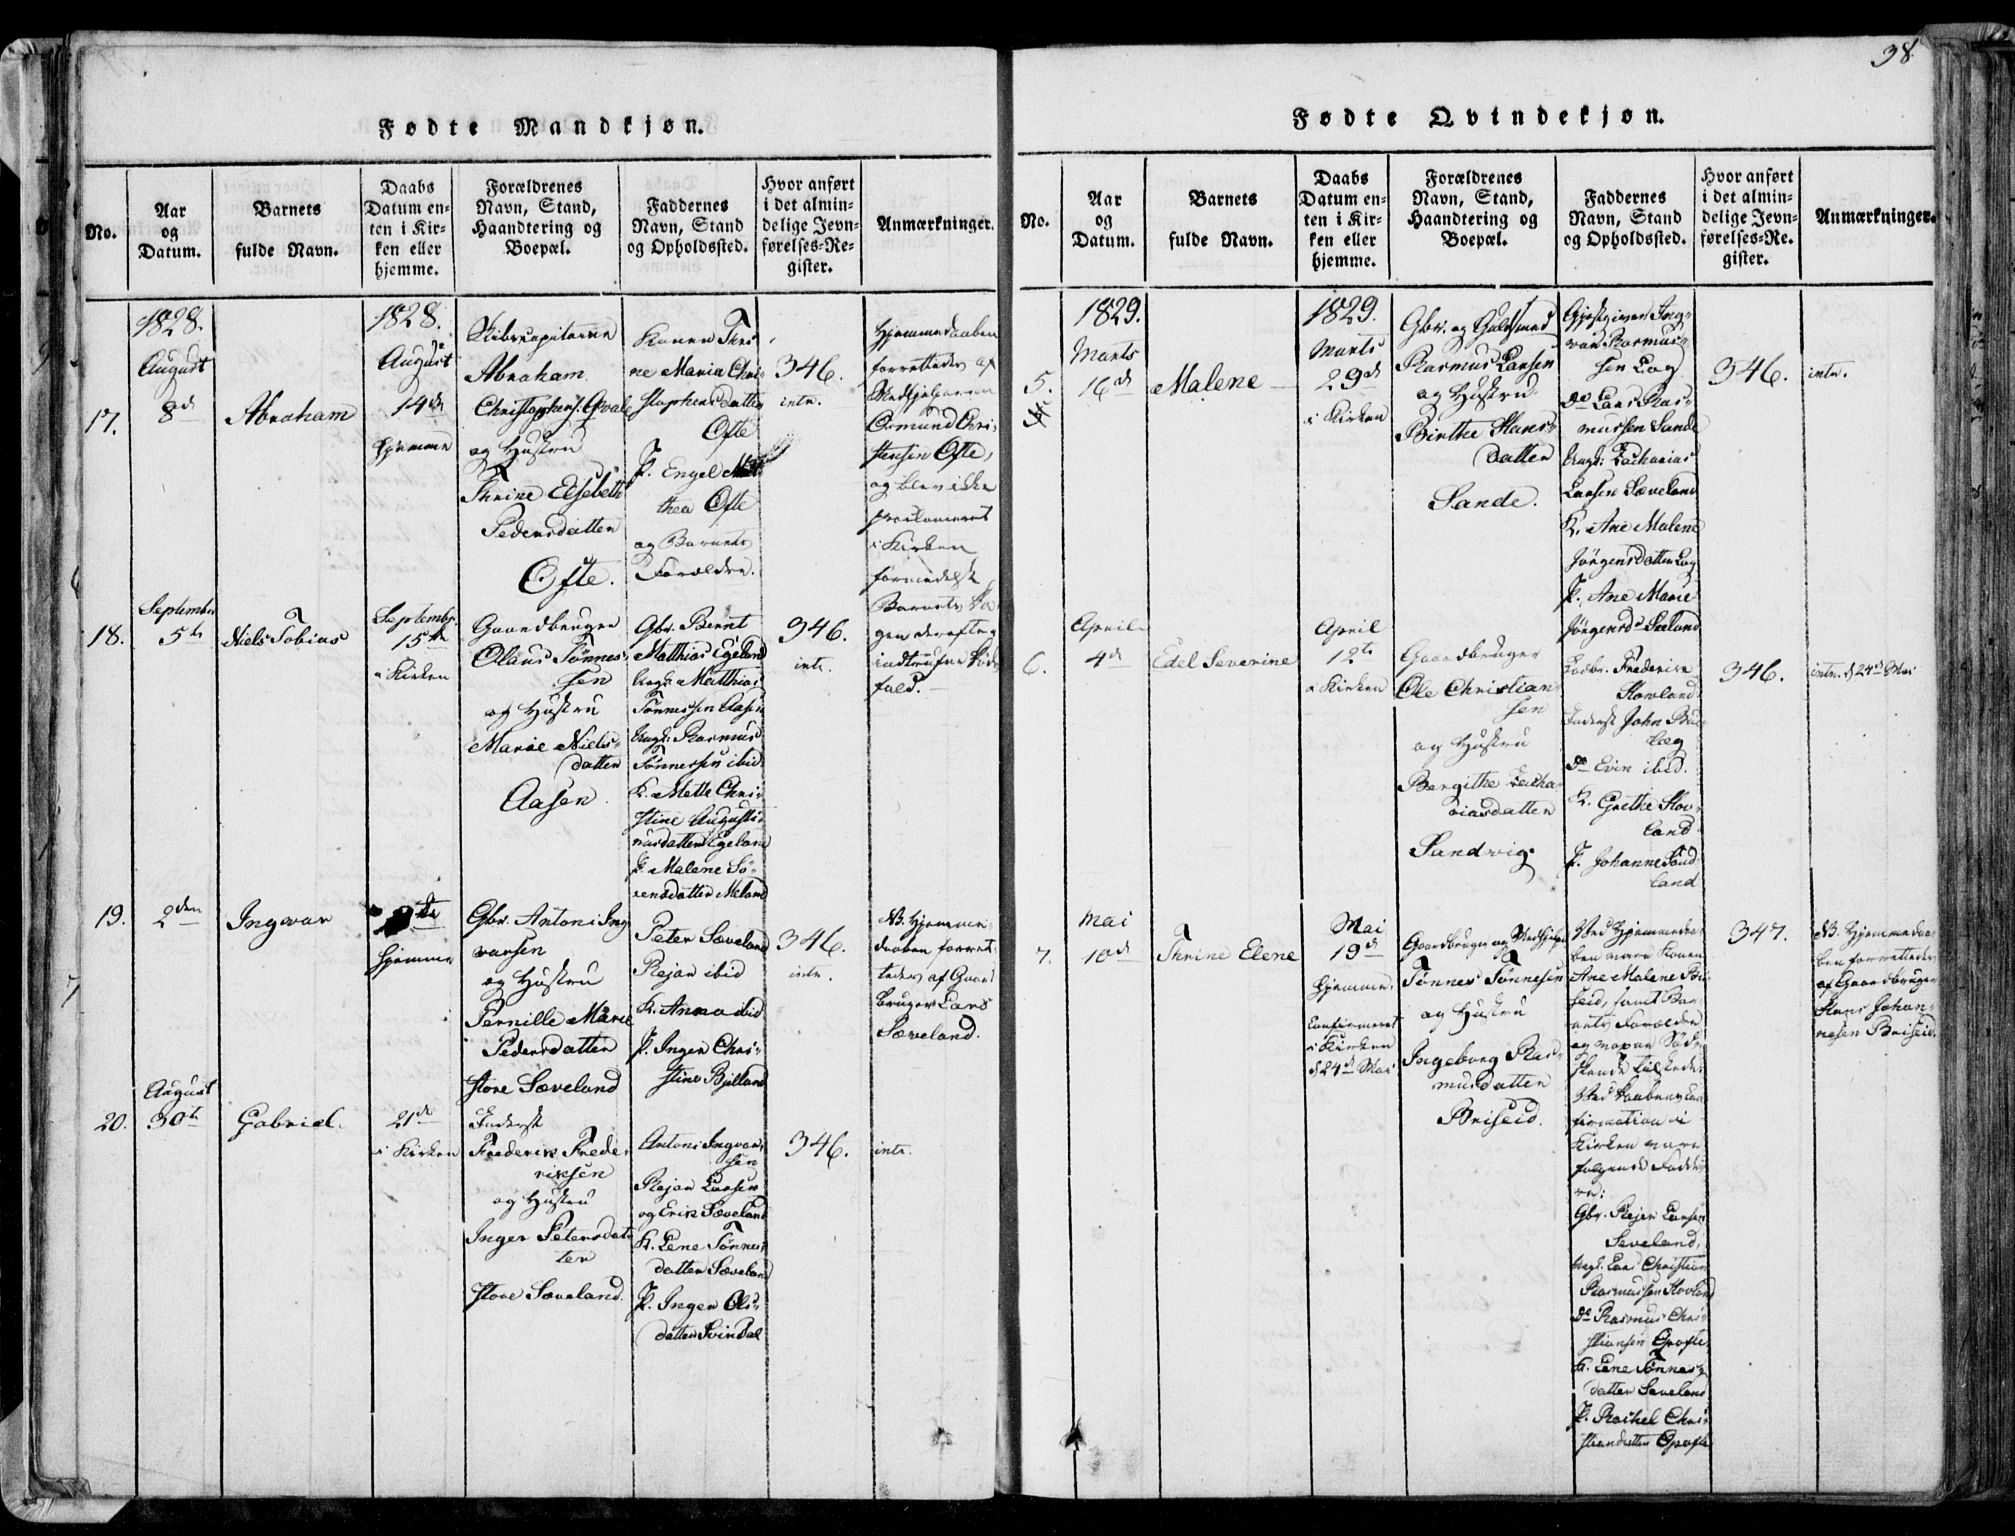 38
Fødte Mandkjøn.
No.
Aar
og
Datum.
Barnets
fulde Navn.
Daabs
Datum en-
ten i Kir-
ken eller
hjemme.
Forældrenes
Navn, Stand,
Haandtering og
Boepæl.
Faddernes
Navn, Stand
og Opholdssted.
Hvor anført
i det almin-
delige Jevn-
førelses-Re-
gister.
Anmærkninger.
17.
1828.
August
8de
Abraham
1828.
August
14de
hjemme
Abraham
Christophers. Qvale
og Hustru
Thrine Elisabeth
Pedersdatter
Ofte.
Konen Thri-
ne Maria Chri-
stophersdatter
Ofte
P. Engel
thea Ofte
og Barnets
Forældre.
346.
intr.
Hjemmedaaben
forrettedes af
Medhjelperen
Osmund Chri-
stensen Ofte,
og blev ikke
proclameret
i Kirken
formedelst
Barnets
gen derefter
indtrufne Døds-
fald.
18.
September
5te
Niels Tobias
Septembr.
15de
i Kirken
Gaardbruger
Olaus Tønnes-
sen
og Hustru
Marie Niels-
datter
Aasen.
Gbr. Bernt
Matthias Egeland
Ungk: Matthias
Tønnessen Aasen
Ungk: Rasmus
Tønnessen ibid.
K. Mette Chri-
stine Augusti-
nusdatter Egeland
P. Malene Sø-
rensdatter Meland
346.
intr.
19.
2den
Ingvar
hjemme
Gbr. Antoni Ing-
varsen
og Hustru
Pernille Marie
Pedersdatter
store Sæveland
Peter Sæveland
Rejar ibid
K. Anna ibid
P. Inger Chri-
stine Bjelland
346.
intr.
NB. Hjemme-
daaben forret-
tedes af Gaard-
bruger Lars
Sæveland.
20.
August
30te
Gabriel.
21de
i Kirken
Inderst
Frederik Frede-
riksen
og Hustru
Inger Petersdat-
ter
store Sæveland.
Antoni Ingvar-
sen
Rejar Larsen
og Erik Sæveland
K. Lene Tønnes-
datter Sæveland
P. Inger Ols-
datter Svindal
346.
intr.
Fødte Qvindekjøn.
No.
Aar
og
Datum.
Barnets
fulde Navn.
Daabs
Datum en-
ten i Kir-
ken eller
hjemme.
Forældrenes
Navn, Stand,
Haandtering og
Boepæl.
Faddernes
Navn, Stand
og Opholdssted.
Hvor anført
i det almin-
delige Jevn-
førelses-Re-
gister.
Anmærkninger.
5.
1829.
Marts
16de
Malene
1829.
Marts
29de
i Kirken
Gbr. og Guldsmed
Rasmus Larsen
og Hustru
Birthe Hans-
datter
Sande.
Gjestgiver Ing-
var Rasmus-
sen Log
do Lars Ras-
mussen Sande
Ungk: Zacharias
Larsen Sæveland
K. Ane Malene
Jørgensdatter Log
P. Ane Marie
Jørgensdr Sæland
346.
intr.
6.
April
4de
Edel Severine
April
12te
i Kirken
Gaardbruger
Ole Christian-
sen
og Hustru
Bergithe Zacha-
riasdatter
Sandvig.
Frederik
Hovland
Inderst John
do Even ibid.
K. Grethe Hov-
land
P. Johanne Sand-
land
346.
intr. d 24de Mai
7.
Mai
10de
Thrine Elene
Mai
19de
hjemme.
Confirmeret
i Kirken
d 24de Mai
Gaardbruger og Medhjelper
Tønnes Tønnesen
og Hustru
Ingeborg Ras-
musdatter
Briseid.
Ved Hjemmedaa-
ben vare Konen
Ane Malene Bri-
seid, samt Bar-
nets Forældre
Ved Daabens Con-
firmation i
Kirken vare
følgende Fadde-
re:
Gbr. Rejer Larsen
Seveland,
Ungk. Lars Christian
Rasmussen Hovland
do Rasmus Chri-
stiansen Opofte
K. Lene Tønnes-
datter Seveland
P. Rachel Chri-
stiansdatter Opofte
347.
NB. Hjemmedaa-
ben forrettedes
af Gaardbruger
Hans Johan-
nesen Briseid.